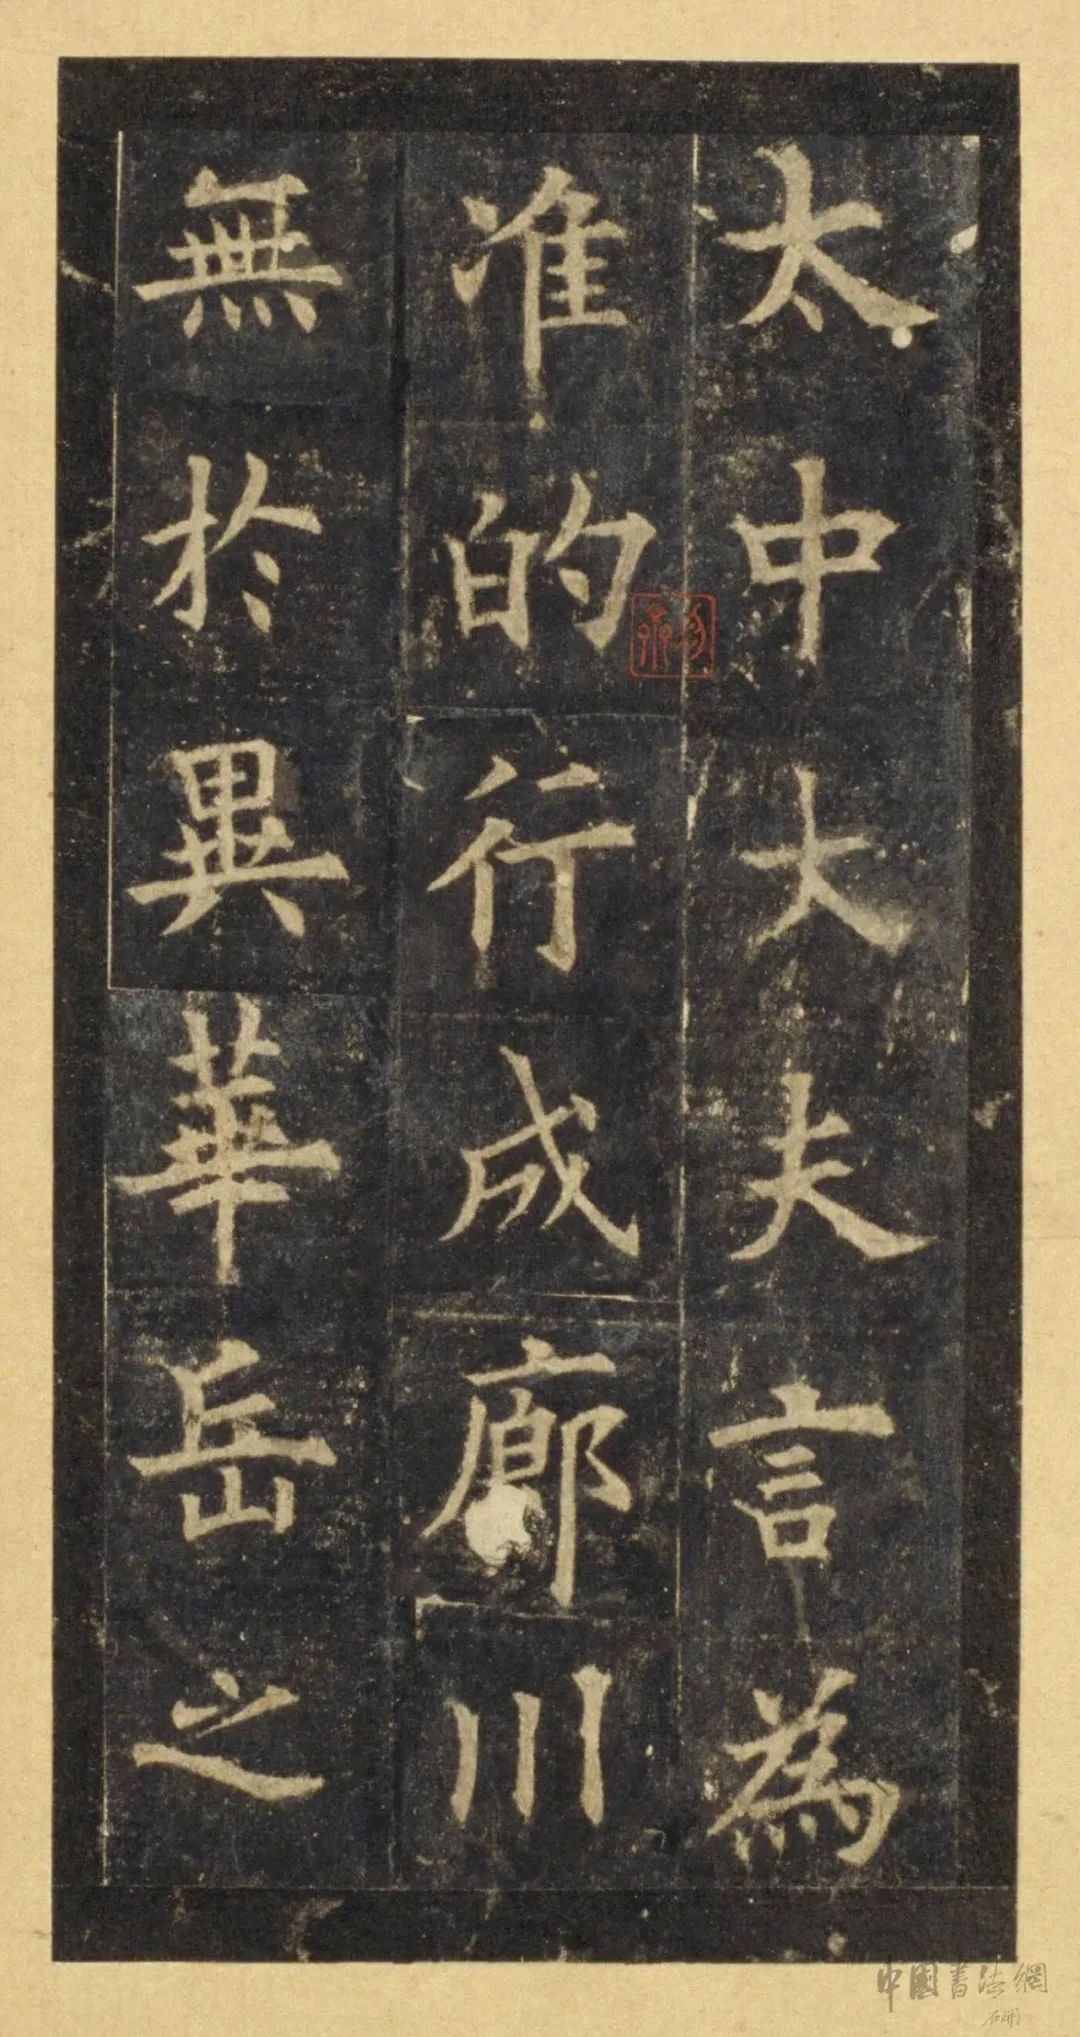 太中大夫言為
准的行成廊川
無於異華岳之
中國書法網